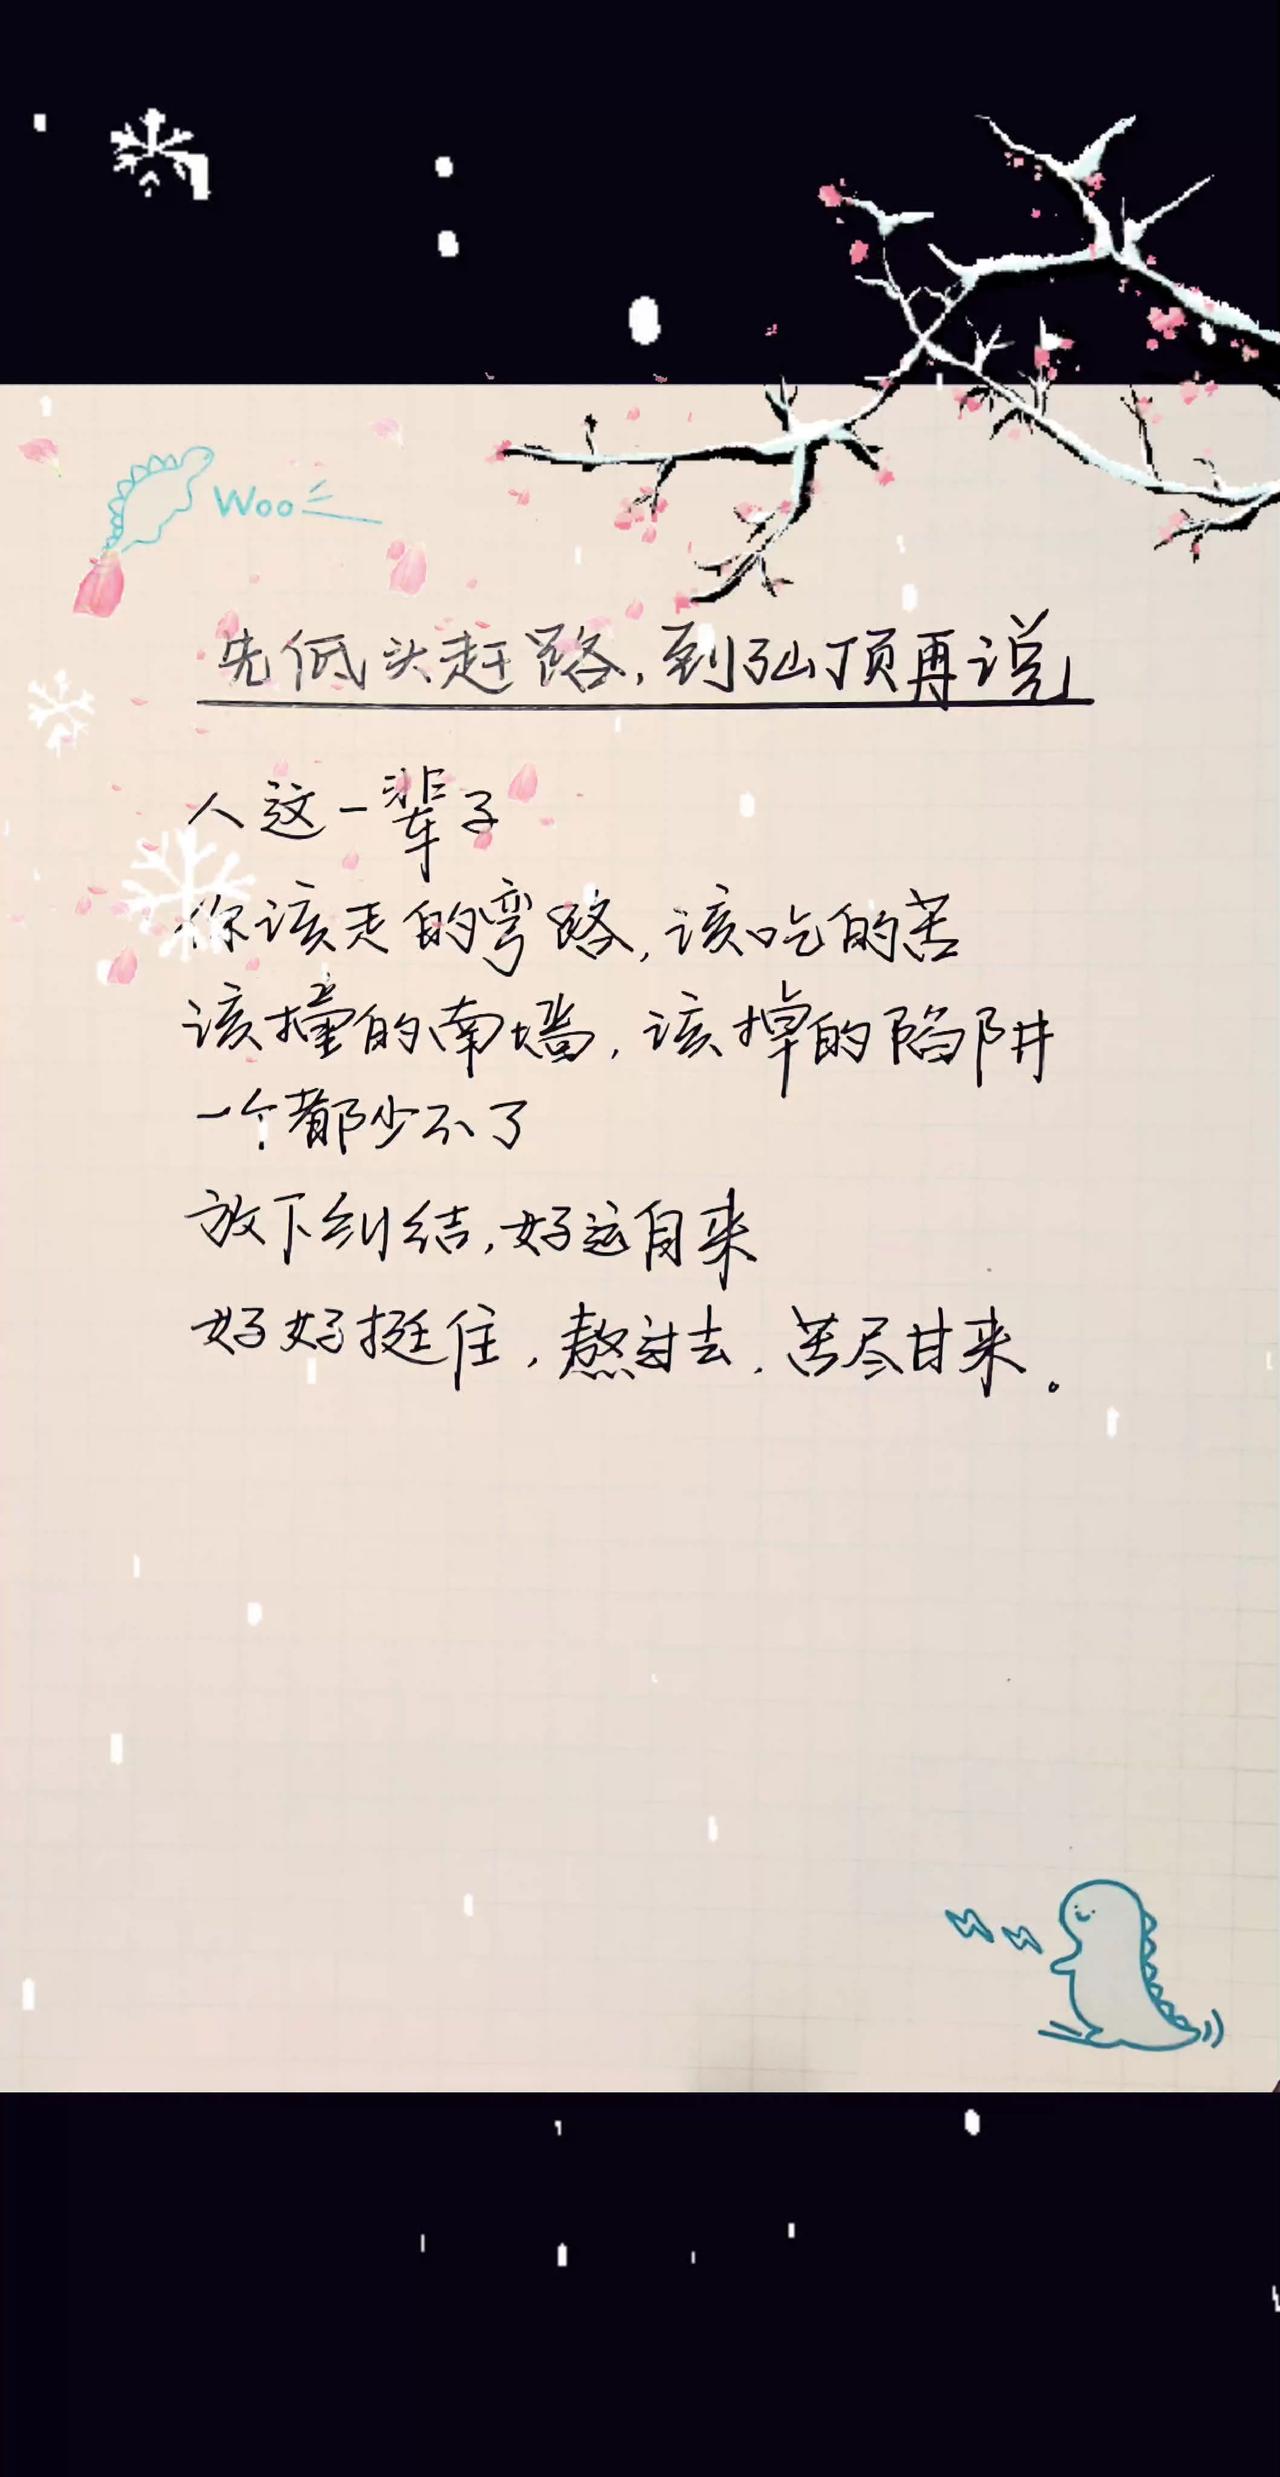 Woo
先低头赶路，到了山顶再说
人这一辈子
你该走的弯路，该吃的苦
该撞的南墙，该掉的陷阱
一个都少不了
放下纠结，好运自来
好好挺住，熬过去，苦尽甘来。